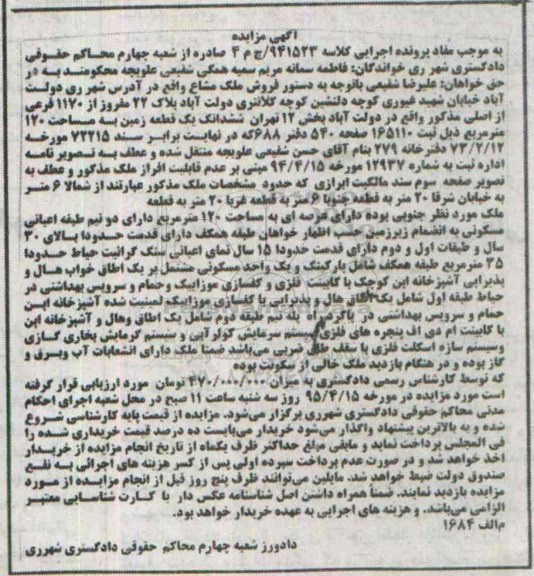 آگهی مزایده
به موجب مفاد پرونده اجرایی کلاسه ۹۴۱۵۲۳/ج م ۴ صادره از شعبه چهارم محاکم حقوقی
دادگستری شهر ری خواندگان: فاطمه سمانه مریم سمیه همگی شفیعی علویجه محکومند به در
حق خواهان: علیرضا شفیعی باتوجه به دستور فروش ملک مشاع واقع در آدرس شهر ری دولت
آباد خیابان شهید غیوری کوچه دلنشین کوچه کلانتری دولت آباد پلاک ۲۲ مفروز از ۱۱۷۰ فرعی
از اصلی مذکور واقع در دولت آباد بخش ۱۲ تهران ششدانگ یک قطعه زمین به مساحت ۱۲۰
مترمربع ذیل ثبت ۱۶۵۱۱۰ صفحه ۵۴۰ دفتر ۶۸۸ که در نهایت برابر سند ۷۲۲۱۵ مورخه
۷۳/۷/۱۲ دفترخانه ۲۷۹ بنام آقای حسن شفیعی علویجه منتقل شده و عطف به تصویر نامه
اداره ثبت به شماره ۱۲۹۳۷ مورخه ۹۴/۴/۱۵ مبنی بر عدم قابلیت افراز ملک مذکور و عطف به
تصویر صفحه سوم سند مالکیت ابرازی که حدود مشخصات ملک مذکور عبارتند از شمالا ۶ متر
به خیابان شرقا ۲۰ متر به قطعه جنوبا ۶ متر به قطعه غربا ۲۰ متر به قطعه
ملک مورد نظر جنوبی بوده دارای عرصه ای به مساحت ۱۲۰ مترمربع دارای دو نیم طبقه اعیانی
مسکونی به انضمام زیرزمین حسب اظهار خواهان طبقه همکف دارای قدمت حدودا بالای ۳۰
سال و طبقات اول و دوم دارای قدمت حدودا ۱۵ سال نمای اعیانی سنگ گرانیت حیاط حدودا
۳۵ مترمربع طبقه همکف شامل پارکینگ و یک واحد مسکونی مشتمل بر یک اطاق خواب هال و
پذیرایی آشپزخانه این کوچک با کابینت فلزی و کفسازی موزاییک وحمام و سرویس بهداشتی در
حیاط طبقه اول شامل یک اطاق هال و پذیرایی با کفسازی موزاییک لمینیت شده آشپزخانه اپن
حمام و سرویس بهداشتی در پاگرد راه پله نیم طبقه دوم شامل یک اطاق وهال و آشپزخانه اپن
با کابینت ام دی اف پنجره های فلزی سیستم سرمایش کولرآبی و سیستم گرمایش بخاری گازی
وسیستم سازه اسکلت فلزی با سقف طاق ضربی می‌باشد ضمنا ملک دارای انشعابات آب وبرق و
گاز بوده و در هنگام بازدید ملک خالی از سکونت بوده
که توسط کارشناس رسمی دادگستری به میزان ۴۷۰/۰۰۰/۰۰۰ تومان مورد ارزیابی قرار گرفته
است مورد مزایده در مورخه ۹۵/۴/۱۵ روز سه شنبه ساعت ۱۱ صبح در محل شعبه اجرای احکام
مدنی محاکم حقوقی دادگستری شهرری برگزار می‌شود. مزایده از قیمت پایه کارشناسی شروع
شده و به بالاترین پیشنهاد واگذار می‌شود خریدار می‌بایست ده درصد قیمت خریداری شده را
فی المجلس پرداخت نماید و مابقی مبلغ حداکثر ظرف یکماه از تاریخ انجام مزایده از خریدار
اخذ خواهد شد و در صورت عدم پرداخت سپرده اولی پس از کسر هزینه های اجرائی به نفع
صندوق دولت ضبط خواهد شد. مایلین می‌توانند ظرف پنج روز قبل از انجام مزایده از مورد
مزایده بازدید نمایند. ضمناً همراه داشتن اصل شناسنامه عکس دار یا کارت شناسایی معتبر
الزامی می‌باشد. و هزینه های اجرایی به عهده خریدار خواهد بود.
م‌الف ۱۶۸۴
دادورز شعبه چهارم محاکم حقوقی دادگستری شهرری